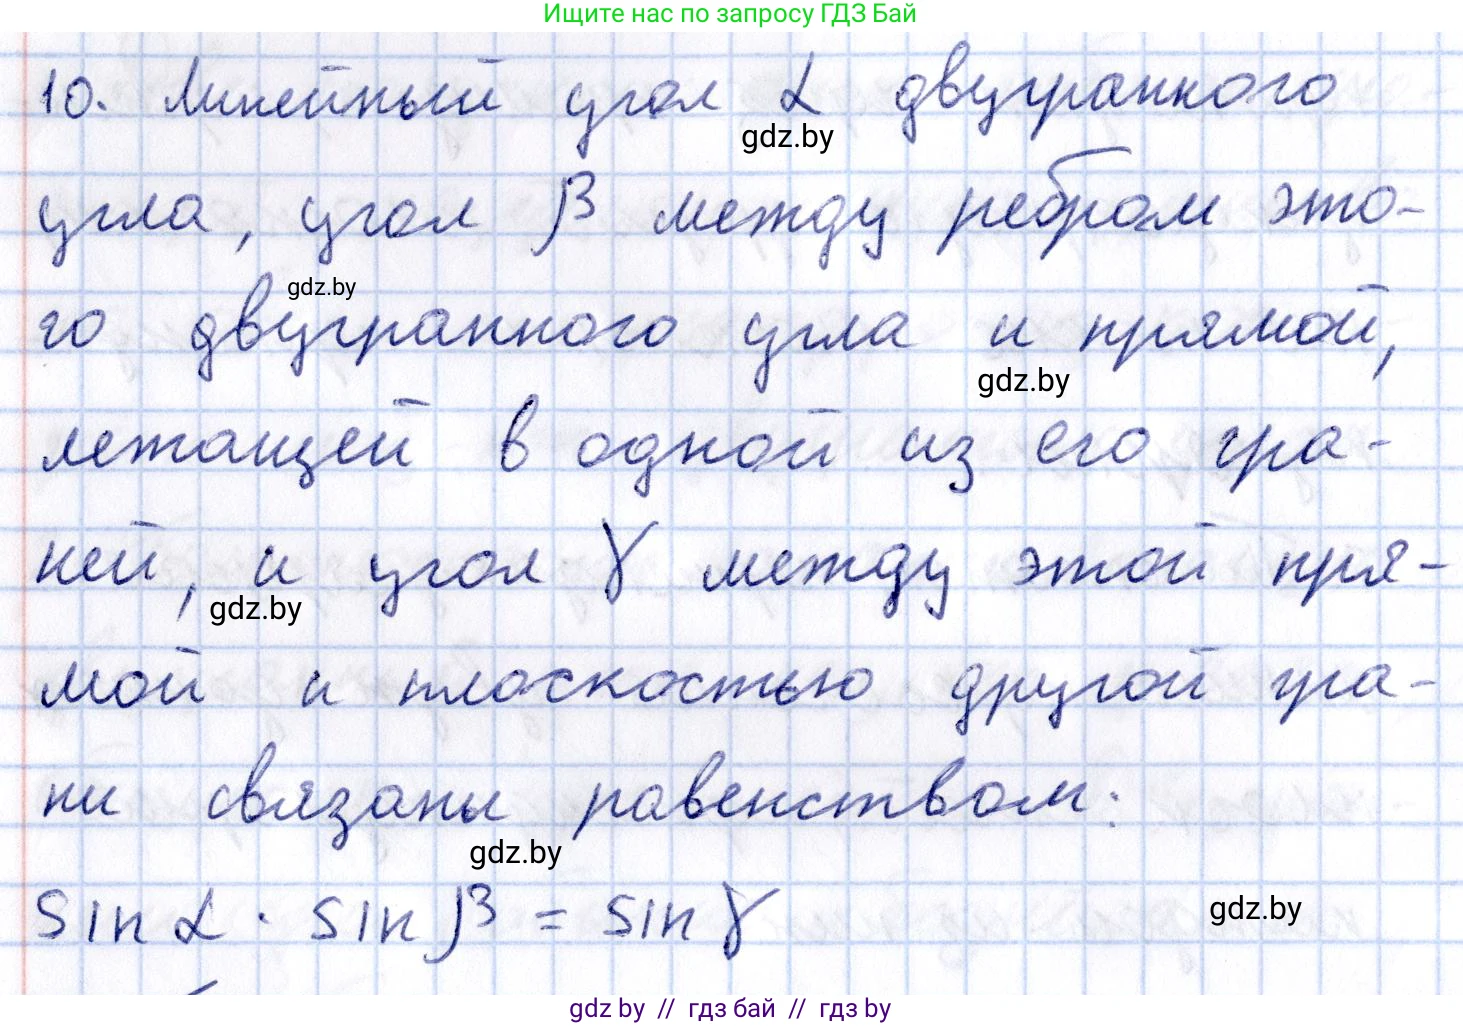 Ищите нас по запросу ГДЗ Бай
10. Линейный угол α двугранного
gdz.by
угла, угол β между ребром это-
gdz.by
го двугранного угла и прямой,
gdz.by
лежащей в одной из его гра-
ней, и угол γ между этой пря-
gdz.by
мой и плоскостью другой гра-
ни связаны равенством:
gdz.by
sin α · sin β = sin γ
gdz.by
gdz by // гдз бай // гдз by